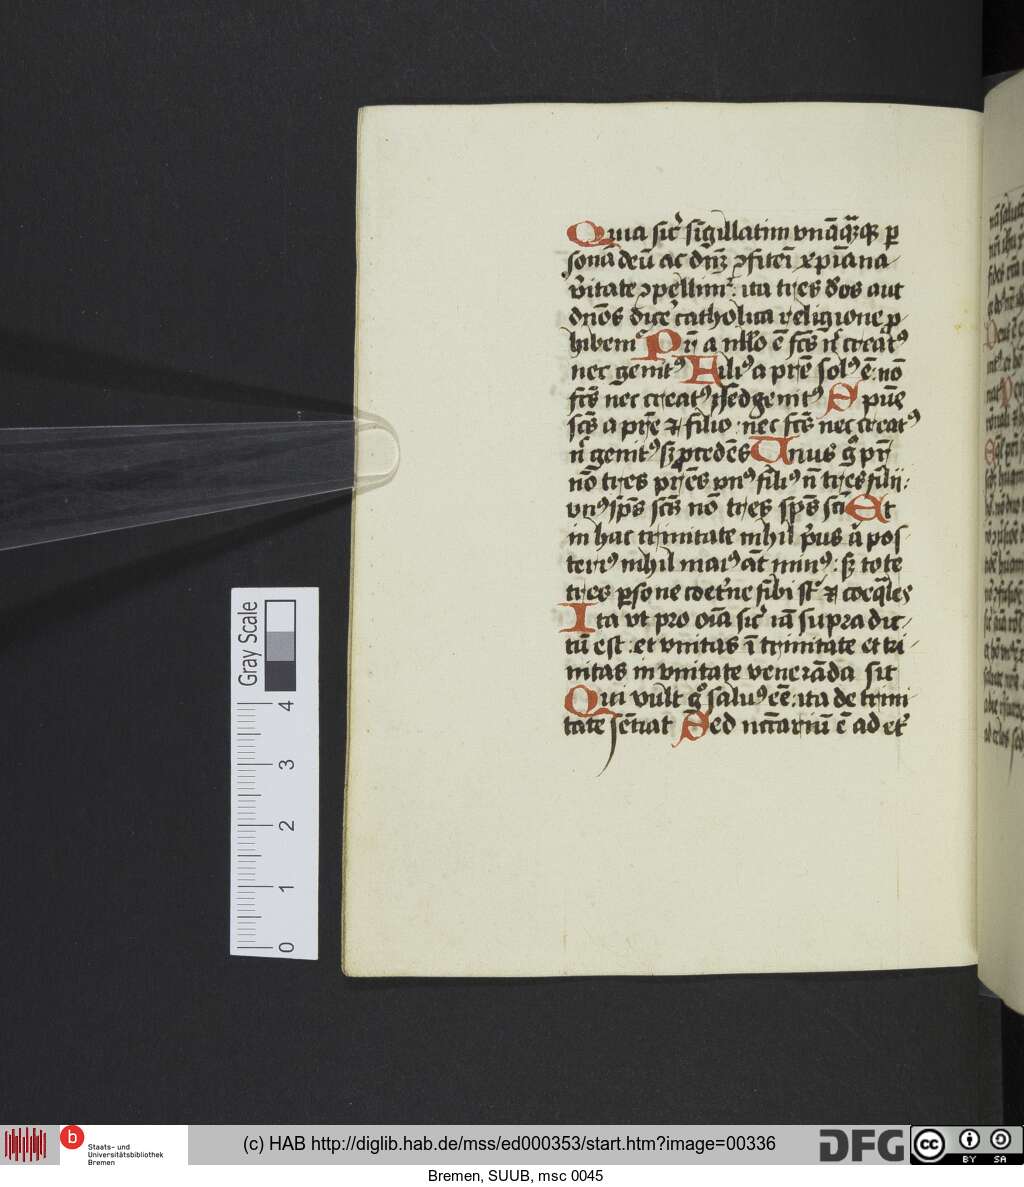 Quia sic̄ sigillatim vnāq̄mqꝫ ꝑ
sonā deū ac dn̄m ꝯfitei xp̄iana
v̄itate ꝯpellimᷣ: ita tres deos aut
dn̄os dicē catholica religione ꝓ
hibemᷣ Pr̄ a nllō ē fcs̄ n̄ creatꝰ
nec genitꝰ Filiꝰ a pr̄e solꝰ ē: nō
fcs̄ nec creatꝰ sed genitꝰ Spūs
scs̄ a pr̄e ⁊ filio: nec fcs̄ nec creatꝰ
n̄ genitꝰ sꝫ ꝓcedēs Unus gͦ pr̄
nō tres pr̄es vnꝰ filiꝰ n̄ tres filii:
vnꝰ sp̄s scs̄ nō tres sp̄s sc̄i Et
in hac trinitate nihil p̄us aͭ pos
teriꝰ nihil maiꝰ aūt minꝰ: sꝫ tote
tres ꝑsone coet̄ne sibi sūt ⁊ coeq̄les
Ita vt pro oīa sic̄ iā supra dic
tū est: et vnitas ī trinitate et tri
nitas in vnitate venerāda sit
Qui vult gͦ saluꝰ eē: ita de trini
tate sēciat Sed nc̄cariū ē ad et̄
Gray Scale
4
3
2
1
0
b
Staats- und
Universitätsbibliothek
Bremen
(c) HAB http://diglib.hab.de/mss/ed000353/start.htm?image=00336
DFG
CC BY SA
Bremen, SUUB, msc 0045